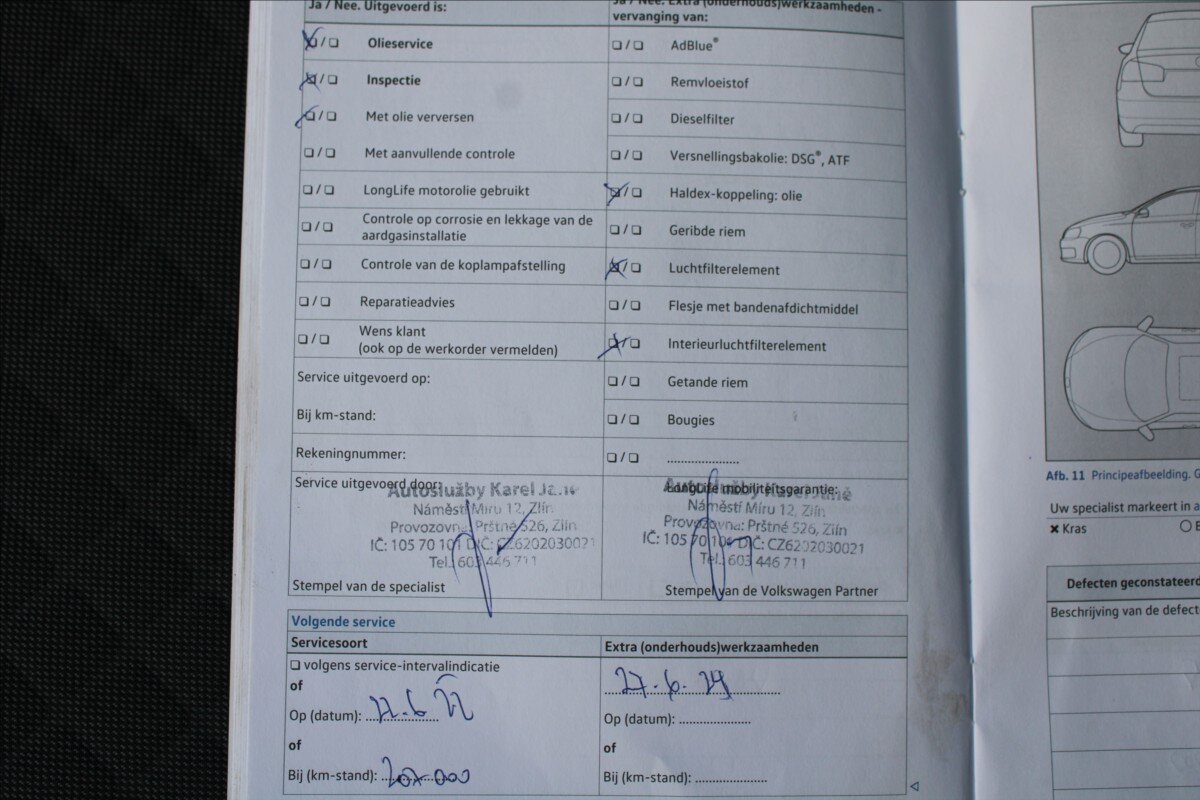 Ja / Nee. Uitgevoerd is:
Ja / Nee. Extra (onderhouds)werkzaamheden -
vervanging van:
Olieservice
Inspectie
Met olie verversen
Met aanvullende controle
LongLife motorolie gebruikt
Controle op corrosie en lekkage van de
aardgasinstallatie
Controle van de koplampafstelling
Reparatieadvies
Wens klant
(ook op de werkorder vermelden)
Service uitgevoerd op:
Bij km-stand:
Rekeningnummer:
AdBlue®
Remvloeistof
Dieselfilter
Versnellingsbakolie: DSG®, ATF
Haldex-koppeling: olie
Geribde riem
Luchtfilterelement
Flesje met bandenafdichtmiddel
Interieurluchtfilterelement
Getande riem
Bougies
Service uitgevoerd door:
Autoslužby Karel
Náměstí Míru 12, Zlín
Provozovna: Prštné 526, Zlín
IČ: 105 70 101 DIČ: CZ6202030021
Tel.: 603 446 711
Stempel van de specialist
LongLife mobiliteitsgarantie:
Náměstí Míru 12, Zlín
Provozovna: Prštné 526, Zlín
IČ: 105 70 101 DIČ: CZ6202030021
Tel.: 603 446 711
Stempel van de Volkswagen Partner
Volgende service
Servicesoort
volgens service-intervalindicatie
of
Op (datum):
of
Bij (km-stand):
Extra (onderhouds)werkzaamheden
Op (datum):
of
Bij (km-stand):
Afb. 11 Principeafbeelding.
Uw specialist markeert in
Kras
Defecten geconstateerd
Beschrijving van de